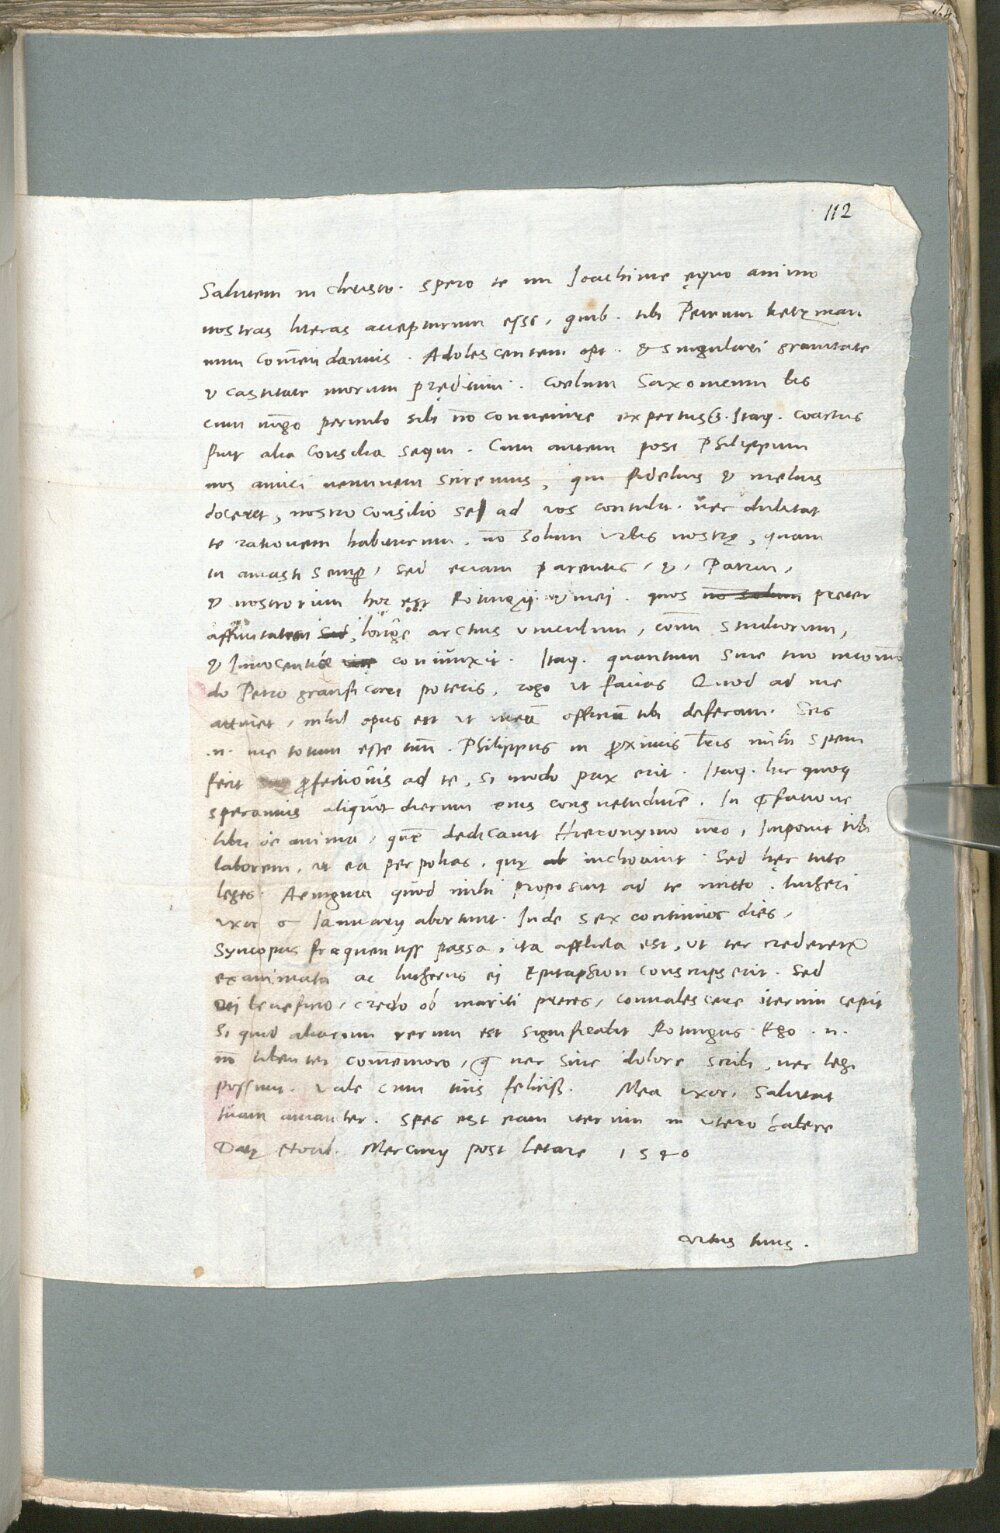 112
Salutem in christo. Spero te mi Ioachime ęquo animo
nostras literas accepturum esse, quib. tibi Petrum
num com̄endamus. Adolescentem opt. & singulari grauitate
& castitate morum pręditum. Coelum Saxonicum bis
cum mḡo periculo sibi nō conuenire expertus ē. Itaq. coactus
fuit alia consilia sequi. Cum autem post Philippum
nos amici neminem sciremus, qui fidelius & melius
doceret, nostro consilio se ad vos contulit. nec dubitat
te rationem habiturum, nō solum urbis nostrę, quam
tu amasti semp, sed eciam parentis, &, Patrui,
& nostrorum hoc est Rotingij & mei. quos nō solum preter
affinitatem sed longe arctius vinculum, com̄ studiorum,
& Innocentię vitę coniunxit. Itaq. quantum sine tuo incom̄o
do Petro gratificari poteris, rogo ut facias Quod ad me
attinet, nihil opus est ut meū officiū tibi deferam. Scis
.n. me totum esse tuū. Philippus in proximis lris mihi spem
fecit profectionis ad te, si modo pax erit. Itaq. hic quoq
speramus aliquot dierum eius consuetudinē. In prefatione
libri de anima, quē dedicauit Hieronymo nr̄o, Imponit tibi
laborem, ut ea perpolias, quę ab inchoauit. Sed hęc tute
leges. Aenigma quod mihi proposuit ad te mitto. Lutheri
uxor Ianuarij abortiuit. Inde sex continuos dies,
Syncopas frequentiss passa, ita afflicta est, ut ter crederetur
exanimata ac lutherus ei Epitaphion conscripserit. Sed
Dei beneficio, credo ob mariti preces, conualescere iterum cepit
Si quid aliarum rerum est significabit Rotingus. Ego .n.
nō libenter com̄emoro, quę nec sine dolore scribi, nec legi
possunt. Vale cum tuis feliciss. Mea uxor salutat
tuam amanter. Spes est eam iterum in utero habere
Datę Mercurij post Letare 1540
Vitus tuus.